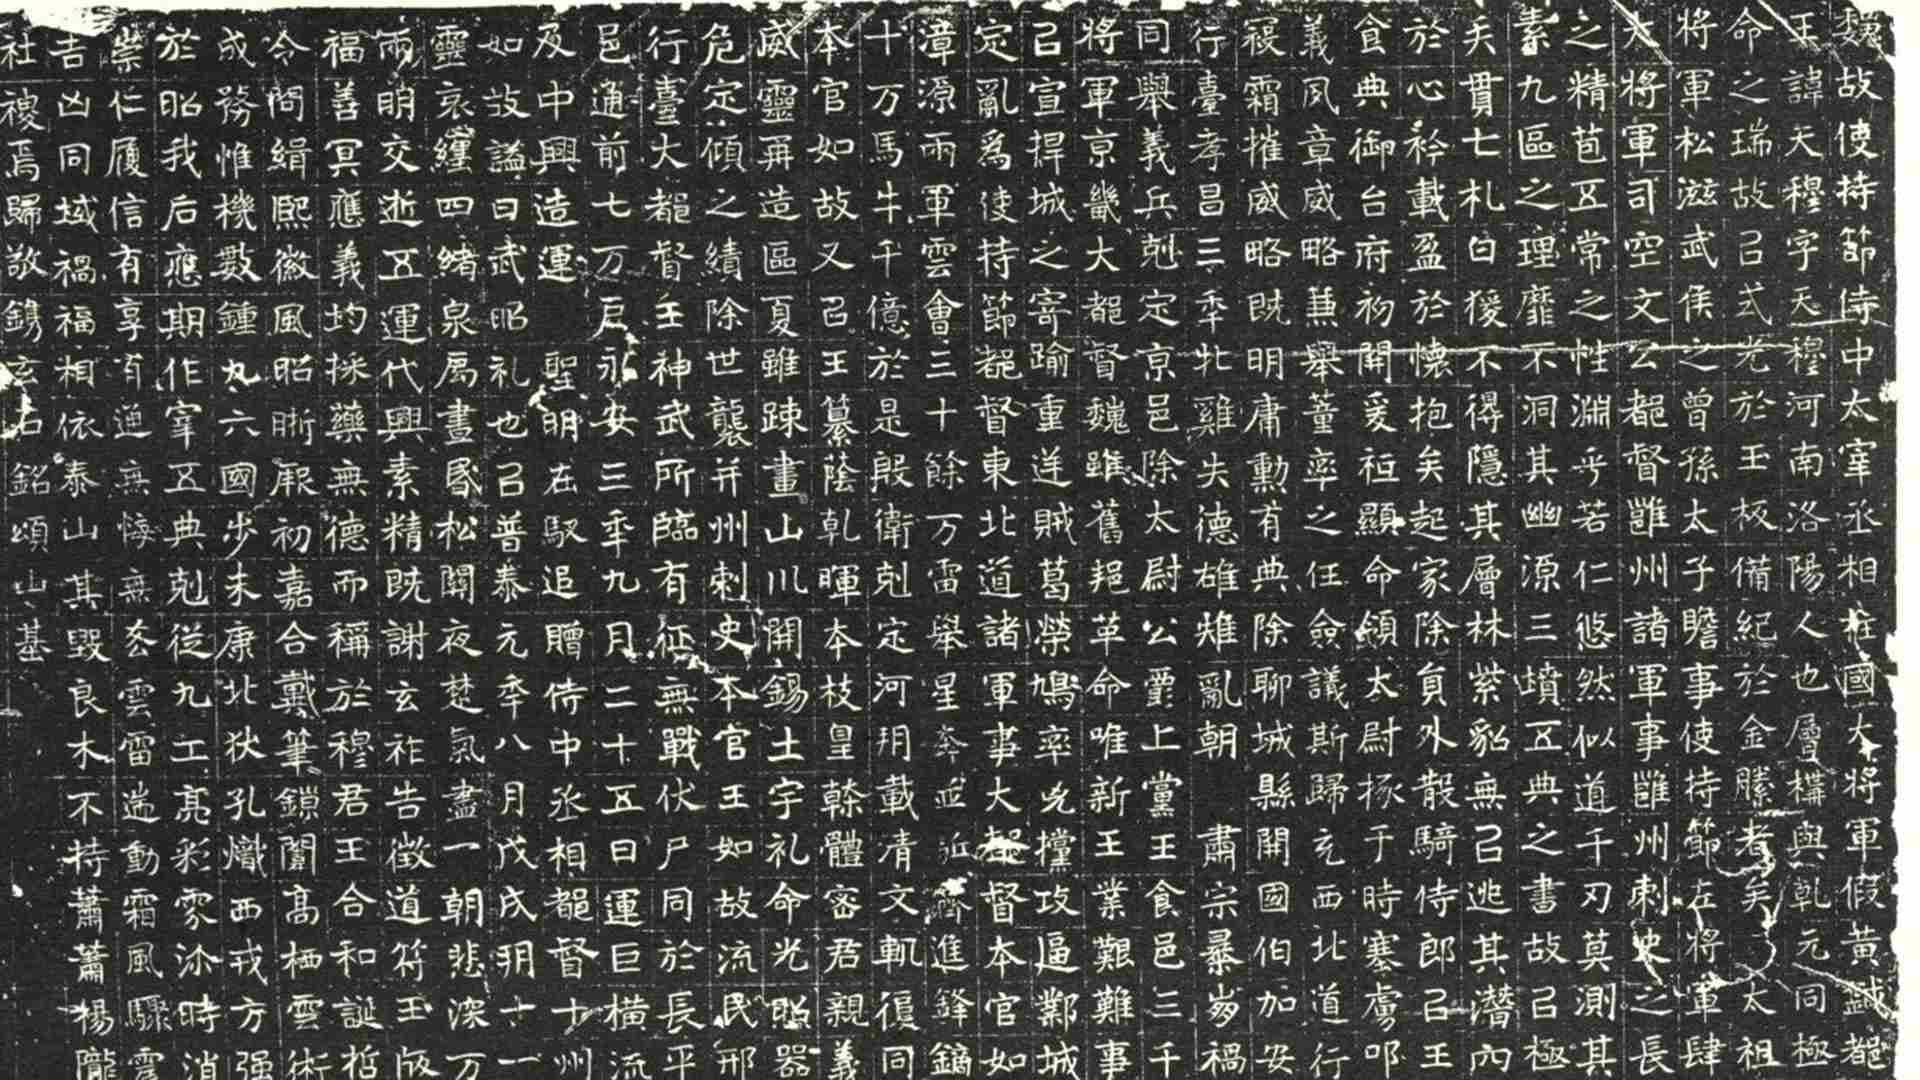 魏故使持節侍中太宰丞相柱國大將軍假黃鉞都
王諱天穆字天穆河南洛陽人也層構與乾元同極
命之瑞故已式光於玉板備紀於金縢者矣太祖
將軍松滋武侯之曾孫太子瞻事使持節左將軍肆
大將軍司空文公都督雝州諸軍事雝州刺史之長
之精苞五常之性淵乎若仁悠然似道千刃莫測其
素九區之理靡不洞其幽源三墳五典之書故已極
夫貫七札白猨不得隱其層林紫貂無已逃其潛內
於心衿載盈於懷抱矣起家除員外散騎侍郎已王
食典御台府初開爰祖顯命領太尉掾于時塞虜叩
義夙章威略兼舉董率之任僉議斯歸充西北道行
寢霜摧威略既明庸勳有典除聊城縣開國伯加安
行臺孝昌三秊牝雞失德雄雉亂朝 肅宗暴崩禍
同舉義兵剋定京邑除太尉公爵上黨王食邑三千
將軍京畿大都督魏雖舊邦革命唯新王業艱難事
已宣捍城之寄踰重逆賊葛榮鳩率兇黨攻逼鄴城
定亂為使持節都督東北道諸軍事大都督本官如
漳源雨軍雲會三十餘万雷舉星奔並驅齊進鋒鏑
十万馬牛千億於是殷衛剋定河朔載清文軌復同
本官如故又已王纂蔭乾暉本枝皇幹體密君親義
威靈再造區夏雖疎畫山川開錫土宇礼命光照器
危定傾之績除世襲并州刺史本官王如故流民邢
行臺大都督王神武所臨有征無戰伏尸同於長平
邑通前七万戶永安三秊九月二十五日運巨橫流
及中興造運 聖明在馭追贈侍中丞相都督十州
如故諡曰武昭礼也已普泰元秊八月戊戌朔十一
靈哀纏四緒泉扃晝昏松關夜楚氣盡一朝悲深万
雨明交逝五運代興素精既謝玄祚告徵道符玉版
福善冥應義均採藥無德而稱於穆君王合和誕哲
令問緝熙徽風昭晰厥初嘉合戴筆鎖闈高栖雲術
成務惟機數鍾九六國步未康北狄孔熾西戎方强
於昭我后應期作宰五典剋從九工亮彩雰沴時消
崇仁履信有享有通無悔無吝雲雷遄動霜風驟雪
吉凶同域禍福相依泰山其毀良木不持蕭蕭楊隴
社稷焉歸敬鐫玄石銘頌山基